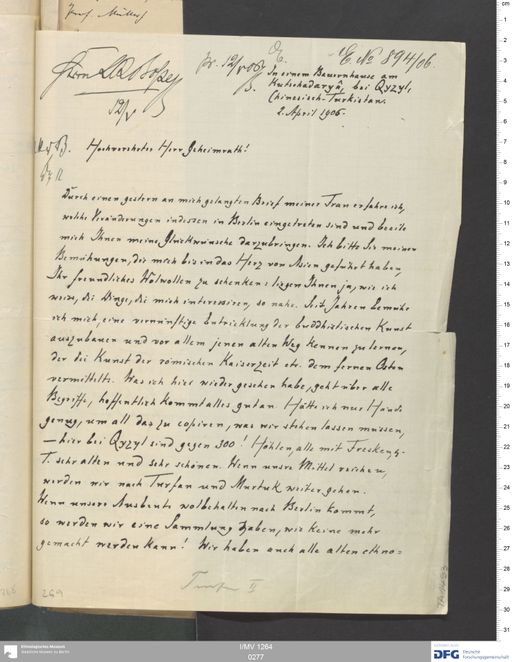 Prof. Müller
pr. 12/V 06.
E. No 894/06.
In einem Bauernhause am
Kutschadaryâ, bei Qyzyl,
Chinesisch-Turkistan.
2. April 1906.
12/V
Hochverehrter Herr Geheimrath!
Durch einen gestern an mich gelangten Brief meiner Frau erfahre ich,
welche Veränderungen indessen in Berlin eingetreten sind und beeile
mich Ihnen meine Glückwünsche darzubringen. Ich bitte Sie meinen
Bemühungen, die mich bis in das Herz von Asien geführt haben,
Ihr freundliches Wolwollen zu schenken: liegen Ihnen ja, wie ich
weiss, die Dinge, die mich interessiren, so nahe. Seit Jahren bemühe
ich mich, eine vernünftige Entwicklung der buddhistischen Kunst
auszubauen und vor allem jenen alten Weg kennen zu lernen,
der die Kunst der römischen Kaiserzeit etc. dem fernen Osten
vermittelte. Was ich hier wieder gesehen habe, geht über alle
Begriffe, hoffentlich kommt alles gut an. Hätte ich nur Hände
genug, um all das zu copiren, was wir stehen lassen müssen,
— hier bei Qyzyl sind gegen 300! Höhlen, alle mit Fresken, z.
T. sehr alten und sehr schönen. Wenn unsre Mittel reichen,
werden wir nach Turfan und Murtuk weiter gehen.
Wenn unsere Ausbeute wolbehalten nach Berlin kommt,
so werden wir eine Sammlung haben, wie keine mehr
gemacht werden kann! Wir haben auch alle alten ethno=
Turfan II
269
I/MV 1264
0277
Ethnologisches Museum
Staatliche Museen zu Berlin
DFG Deutsche
Forschungsgemeinschaft